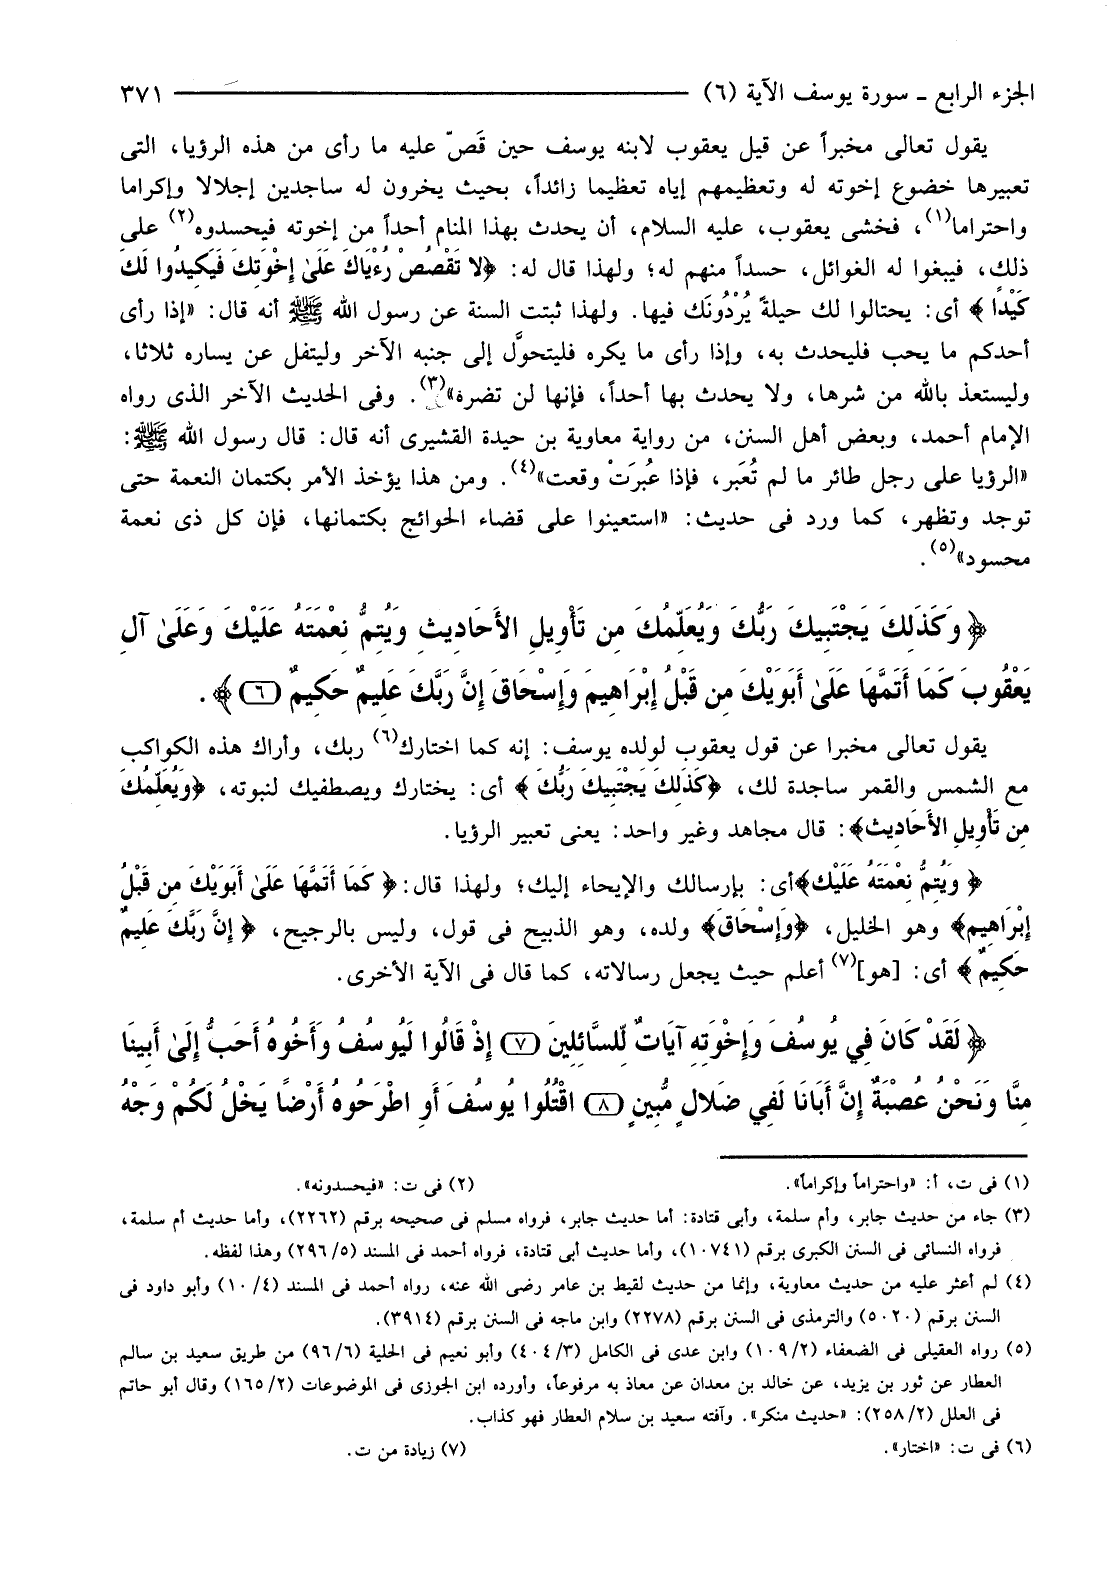 الجزء الرابع ـ سورة يوسف الآية (٦) ٣٧١
يقول تعالى مخبراً عن قيل يعقوب لابنه يوسف حين قَصّ عليه ما رأى من هذه الرؤيا، التى
تعبيرها خضوع إخوته له وتعظيمهم إياه تعظيما زائداً، بحيث يخرون له ساجدين إجلالا وإكراما
واحتراما(١)، فخشى يعقوب، عليه السلام، أن يحدث بهذا المنام أحداً من إخوته فيحسدوه(٢) على
ذلك، فيبغوا له الغوائل، حسداً منهم له؛ ولهذا قال له: ﴿لا تَقْصُصْ رُءْيَاكَ عَلَىٰ إِخْوَتِكَ فَيَكِيدُوا لَكَ
كَيْدًا ﴾ أى: يحتالوا لك حيلةً يُرْدُونَك فيها. ولهذا ثبتت السنة عن رسول الله ﷺ أنه قال: «إذا رأى
أحدكم ما يحب فليحدث به، وإذا رأى ما يكره فليتحوَّل إلى جنبه الآخر وليتفل عن يساره ثلاثا،
وليستعذ بالله من شرها، ولا يحدث بها أحداً، فإنها لن تضره»(٣). وفى الحديث الآخر الذى رواه
الإمام أحمد، وبعض أهل السنن، من رواية معاوية بن حيدة القشيرى أنه قال: قال رسول الله ﷺ:
«الرؤيا على رجل طائر ما لم تُعَبر، فإذا عُبرَتْ وقعت»(٤). ومن هذا يؤخذ الأمر بكتمان النعمة حتى
توجد وتظهر، كما ورد فى حديث: «استعينوا على قضاء الحوائج بكتمانها، فإن كل ذى نعمة
محسود»(٥).
﴿ وَكَذَلِكَ يَجْتَبِيكَ رَبُّكَ وَيُعَلِّمُكَ مِن تَأْوِيلِ الأَحَادِيثِ وَيُتِمُّ نِعْمَتَهُ عَلَيْكَ وَعَلَىٰ آلِ
يَعْقُوبَ كَمَا أَتَمَّهَا عَلَىٰ أَبَوَيْكَ مِن قَبْلُ إِبْرَاهِيمَ وَإِسْحَاقَ إِنَّ رَبَّكَ عَلِيمٌ حَكِيمٌ (٦) ﴾ .
يقول تعالى مخبرا عن قول يعقوب لولده يوسف: إنه كما اختارك(٦) ربك، وأراك هذه الكواكب
مع الشمس والقمر ساجدة لك، ﴿كَذَلِكَ يَجْتَبِيكَ رَبُّكَ ﴾ أى: يختارك ويصطفيك لنبوته، ﴿وَيُعَلِّمُكَ
مِن تَأْوِيلِ الأَحَادِيث﴾: قال مجاهد وغير واحد: يعنى تعبير الرؤيا.
﴿ وَيُتِمُّ نِعْمَتَهُ عَلَيْك﴾أى: بإرسالك والإيحاء إليك؛ ولهذا قال:﴿ كَمَا أَتَمَّهَا عَلَىٰ أَبَوَيْكَ مِن قَبْلُ
إِبْرَاهِيم﴾ وهو الخليل، ﴿وَإِسْحَاقَ﴾ ولده، وهو الذبيح فى قول، وليس بالرجيح، ﴿ إِنَّ رَبَّكَ عَلِيمٌ
حَكِيمٌ ﴾ أى: [هو](٧) أعلم حيث يجعل رسالاته، كما قال فى الآية الأخرى.
﴿ لَقَدْ كَانَ فِي يُوسُفَ وَإِخْوَتِهِ آيَاتٌ لِّلسَّائِلِينَ (٧) إِذْ قَالُوا لَيُوسُفُ وَأَخُوهُ أَحَبُّ إِلَىٰ أَبِينَا
مِنَّا وَنَحْنُ عُصْبَةٌ إِنَّ أَبَانَا لَفِي ضَلالٍ مُّبِينٍ (٨) اقْتُلُوا يُوسُفَ أَوِ اطْرَحُوهُ أَرْضًا يَخْلُ لَكُمْ وَجْهُ
(١) فى ت، أ: «واحتراماً وإكراماً». (٢) فى ت: «فيحسدونه».
(٣) جاء من حديث جابر، وأم سلمة، وأبى قتادة: أما حديث جابر، فرواه مسلم فى صحيحه برقم (٢٢٦٢)، وأما حديث أم سلمة،
فرواه النسائى فى السنن الكبرى برقم (١٠٧٤١)، وأما حديث أبى قتادة، فرواه أحمد فى المسند (٢٩٦/٥) وهذا لفظه.
(٤) لم أعثر عليه من حديث معاوية، وإنما من حديث لقيط بن عامر رضى الله عنه، رواه أحمد فى المسند (١٠/٤) وأبو داود فى
السنن برقم (٥٠٢٠) والترمذى فى السنن برقم (٢٢٧٨) وابن ماجه فى السنن برقم (٣٩١٤).
(٥) رواه العقيلى فى الضعفاء (١٠٩/٢) وابن عدى فى الكامل (٤٠٤/٣) وأبو نعيم فى الحلية (٩٦/٦) من طريق سعيد بن سالم
العطار عن ثور بن يزيد، عن خالد بن معدان عن معاذ به مرفوعاً، وأورده ابن الجوزى فى الموضوعات (١٦٥/٢) وقال أبو حاتم
فى العلل (٢٥٨/٢): «حديث منكر». وآفته سعيد بن سلام العطار فهو كذاب.
(٦) فى ت: «اختار». (٧) زيادة من ت.